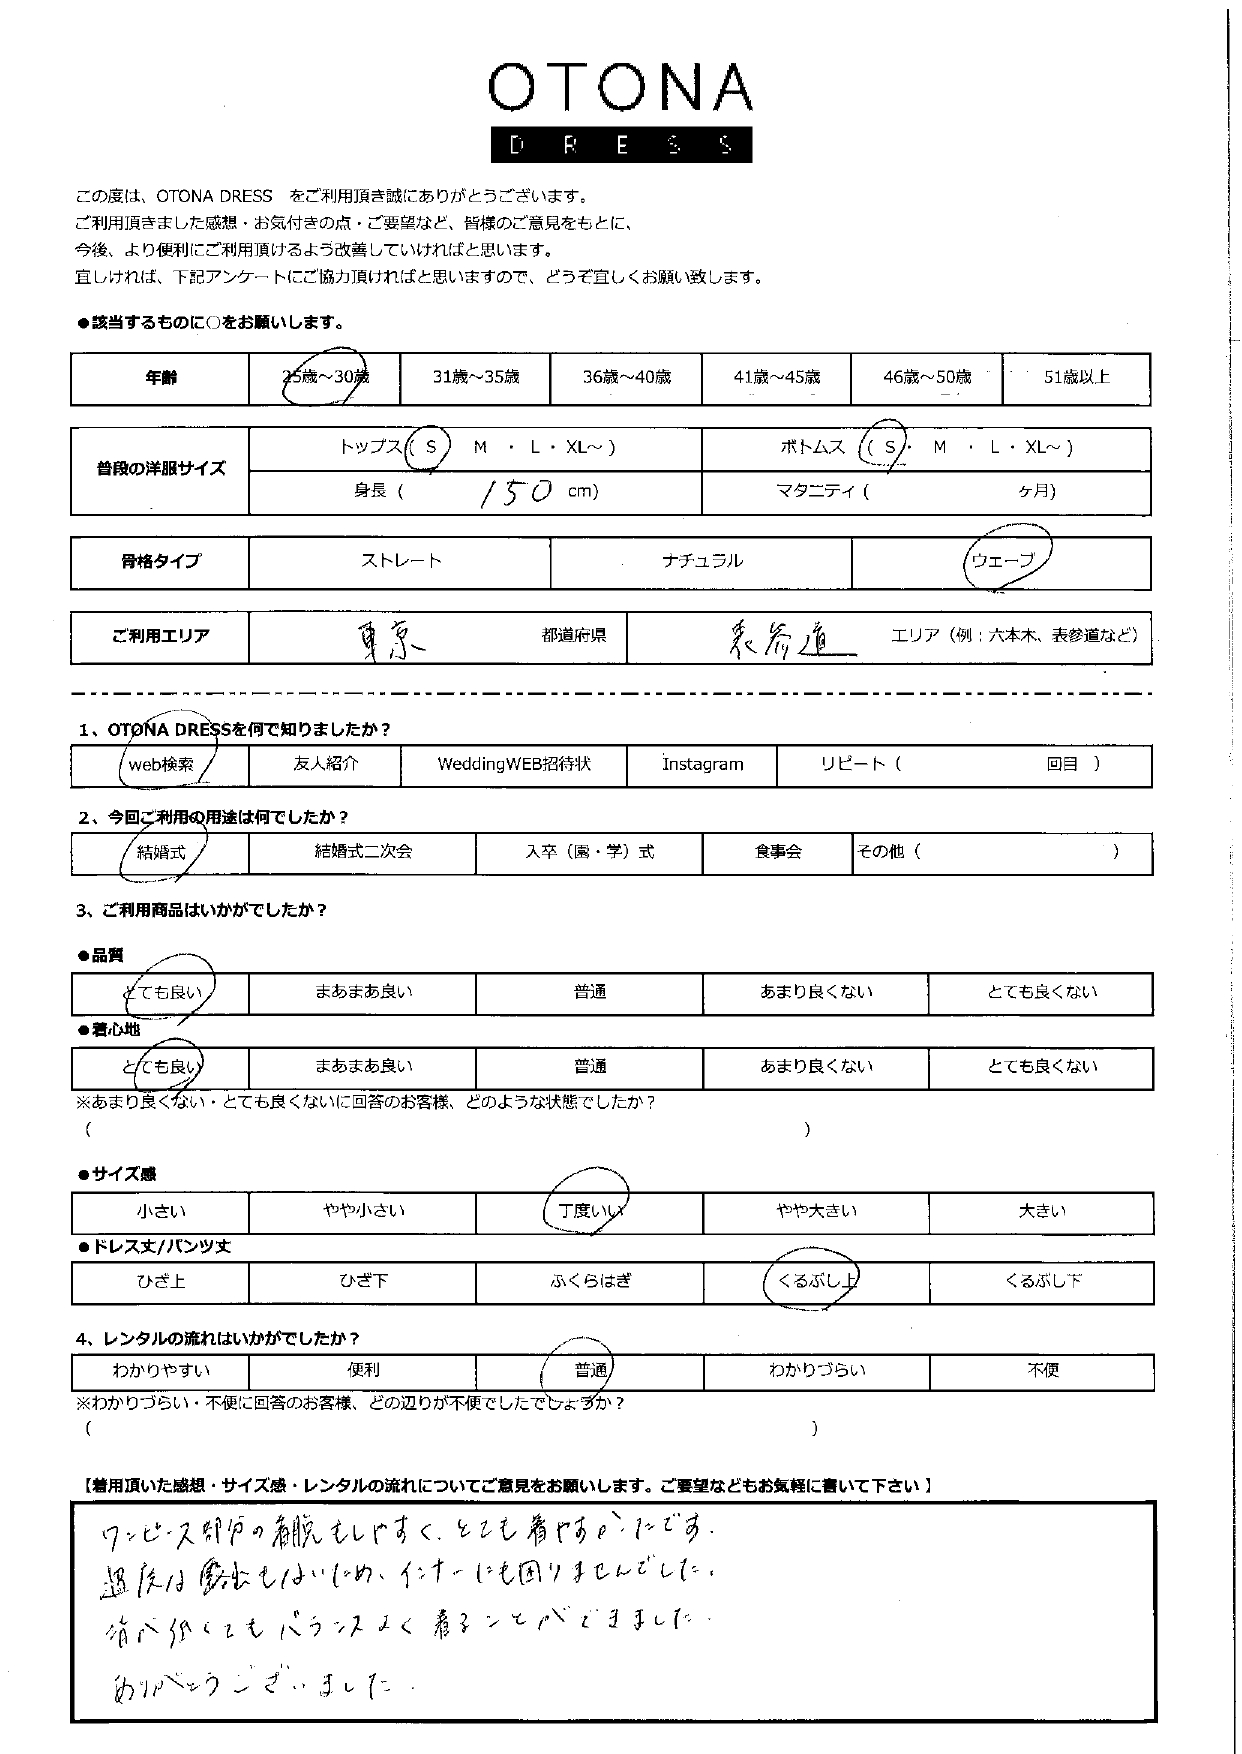 OTONA
DRESS
この度は、OTONA DRESS　をご利用頂き誠にありがとうございます。
ご利用頂きました感想・お気付きの点・ご要望など、皆様のご意見をもとに、
今後、より便利にご利用頂けるよう改善していければと思います。
宜しければ、下記アンケートにご協力頂ければと思いますので、どうぞ宜しくお願い致します。
●該当するものに○をお願いします。
年齢 25歳～30歳 31歳～35歳 36歳～40歳 41歳～45歳 46歳～50歳 51歳以上
普段の洋服サイズ トップス( S M ・ L ・ XL～ ) ボトムス ( S ・ M ・ L ・ XL～ )
身長 ( 150 cm) マタニティ ( ヶ月)
骨格タイプ ストレート ナチュラル ウェーブ
ご利用エリア 東京 都道府県 表参道 エリア（例：六本木、表参道など）
1、OTONA DRESSを何で知りましたか？
web検索 友人紹介 WeddingWEB招待状 Instagram リピート ( 回目 )
2、今回ご利用の用途は何でしたか？
結婚式 結婚式二次会 入卒（園・学）式 食事会 その他 ( )
3、ご利用商品はいかがでしたか？
●品質
とても良い まあまあ良い 普通 あまり良くない とても良くない
●着心地
とても良い まあまあ良い 普通 あまり良くない とても良くない
※あまり良くない・とても良くないに回答のお客様、どのような状態でしたか？
( )
●サイズ感
小さい やや小さい 丁度いい やや大きい 大きい
●ドレス丈/パンツ丈
ひざ上 ひざ下 ふくらはぎ くるぶし上 くるぶし下
4、レンタルの流れはいかがでしたか？
わかりやすい 便利 普通 わかりづらい 不便
※わかりづらい・不便に回答のお客様、どの辺りが不便でしたでしょうか？
( )
【着用頂いた感想・サイズ感・レンタルの流れについてご意見をお願いします。ご要望などもお気軽に書いて下さい】
ワンピース部分の着脱もしやすく、とても着やすかったです。
過度な露出もないため、インナーにも困りませんでした。
背が低くてもバランスよく着ることができました。
ありがとうございました。